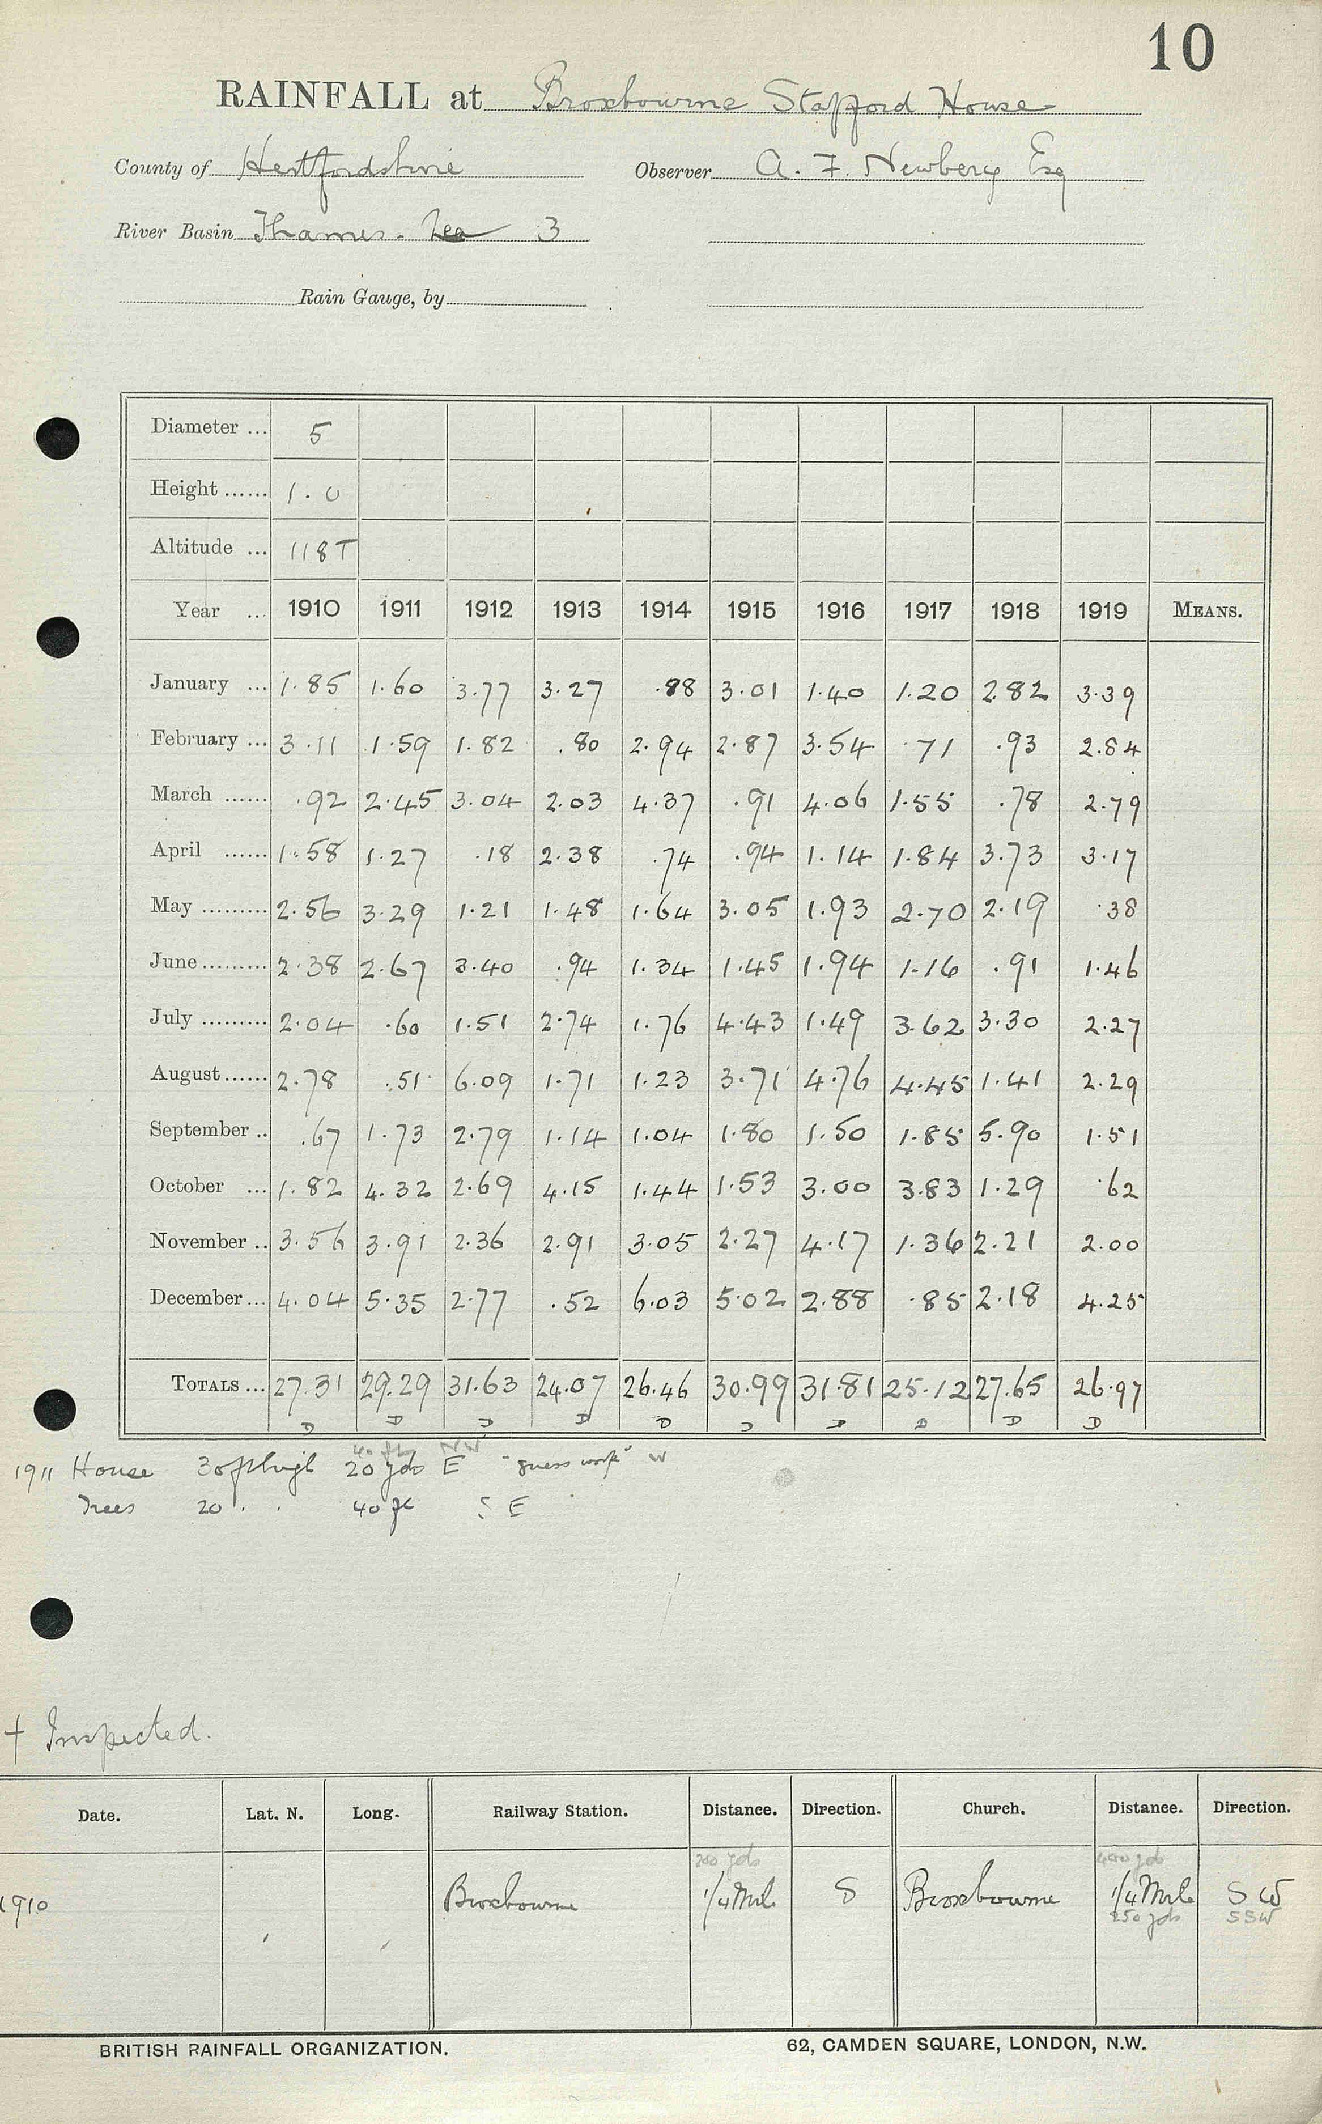 10
RAINFALL at Broxbourne Stafford House
County of Hertfordshire Observer A. F. Newbery Esq
River Basin Thames. Lea 3
Rain Gauge, by
Diameter ... 5
Height ...... 1.0
Altitude ... 118T
Year ... 1910 1911 1912 1913 1914 1915 1916 1917 1918 1919 MEANS.
January ... 1.85 1.60 3.77 3.27 .88 3.01 1.40 1.20 2.82 3.39
February ... 3.11 1.59 1.82 .80 2.94 2.87 3.54 .71 .93 2.84
March ...... .92 2.45 3.04 2.03 4.37 .91 4.06 1.55 .78 2.79
April ...... 1.58 1.27 .18 2.38 .74 .94 1.14 1.84 3.73 3.17
May ......... 2.56 3.29 1.21 1.48 1.64 3.05 1.93 2.70 2.19 .38
June ......... 2.38 2.67 3.40 .94 1.34 1.45 1.94 1.16 .91 1.46
July ......... 2.04 .60 1.51 2.74 1.76 4.43 1.49 3.62 3.30 2.27
August ...... 2.78 .51 6.09 1.71 1.23 3.71 4.76 4.45 1.41 2.29
September .. .67 1.73 2.79 1.14 1.04 1.80 1.50 1.85 5.90 1.51
October ... 1.82 4.32 2.69 4.15 1.44 1.53 3.00 3.83 1.29 .62
November .. 3.56 3.91 2.36 2.91 3.05 2.27 4.17 1.36 2.21 2.00
December ... 4.04 5.35 2.77 .52 6.03 5.02 2.88 .85 2.18 4.25
TOTALS ... 27.31 29.29 31.63 24.07 26.46 30.99 31.81 25.12 27.65 26.97
D D D D D D D D D D
40 ft NW
1911 House 30ft high 20 yds E "guess work" W
Trees 20 . . 40 ft S E
† Inspected.
Date. Lat. N. Long. Railway Station. Distance. Direction. Church. Distance. Direction.
200 yds 400 yds
1910 Broxbourne 1/4 Mile S Broxbourne 1/4 Mile S W
250 yds SSW
BRITISH RAINFALL ORGANIZATION. 62, CAMDEN SQUARE, LONDON, N.W.